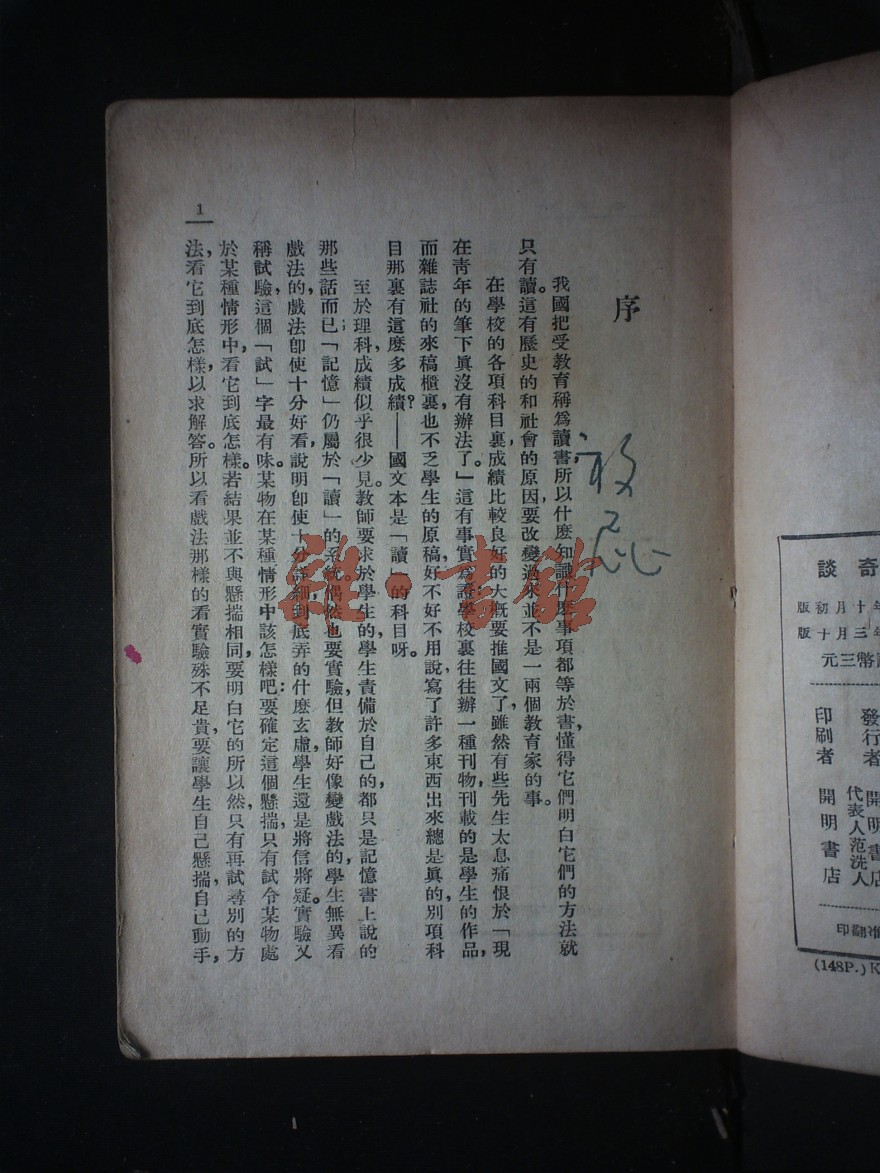 序
我國把受教育稱爲讀書,所以什麽知識什麽事項都等於書,懂得它們明白它們的方法就
只有讀。這有歷史的和社會的原因,要改變過來並不是一兩個教育家的事。
在學校的各項科目裏,成績比較良好的大概要推國文了,雖然有些先生太息痛恨於「現
在青年的筆下眞沒有辦法了。」這有事實爲證,學校裏往往辦一種刊物,刊載的是學生的作品,
而雜誌社的來稿櫃裏,也不乏學生的原稿,好不好不用說,寫了許多東西出來總是眞的,別項科
目那裏有這麽多成績?——國文本是「讀」的科目呀。
至於理科,成績似乎很少見。教師要求於學生的,學生責備於自己的,都只是記憶書上說的
那些話而已;「記憶」仍屬於「讀」的系統,偶然也要實驗,但教師好像變戲法的,學生無異看
戲法的,戲法卽使十分好看,說明卽使十分詳細,到底弄的什麽玄虛,學生還是將信將疑。實驗又
稱試驗,這個「試」字最有味。某物在某種情形中該怎樣吧:要確定這個懸揣,只有試令某物處
於某種情形中,看它到底怎樣。若結果並不與懸揣相同,要明白它的所以然,只有再試尋別的方
法,看它到底怎樣,以求解答。所以看戲法那樣的看實驗殊不足貴,要讓學生自己懸揣,自己動手,
1
雜·書館
奇談
年十月初版
年三月十版
幣三元
發行者
開明書店
代表人范洗人
印刷者
開明書店
翻印
(148P.) K